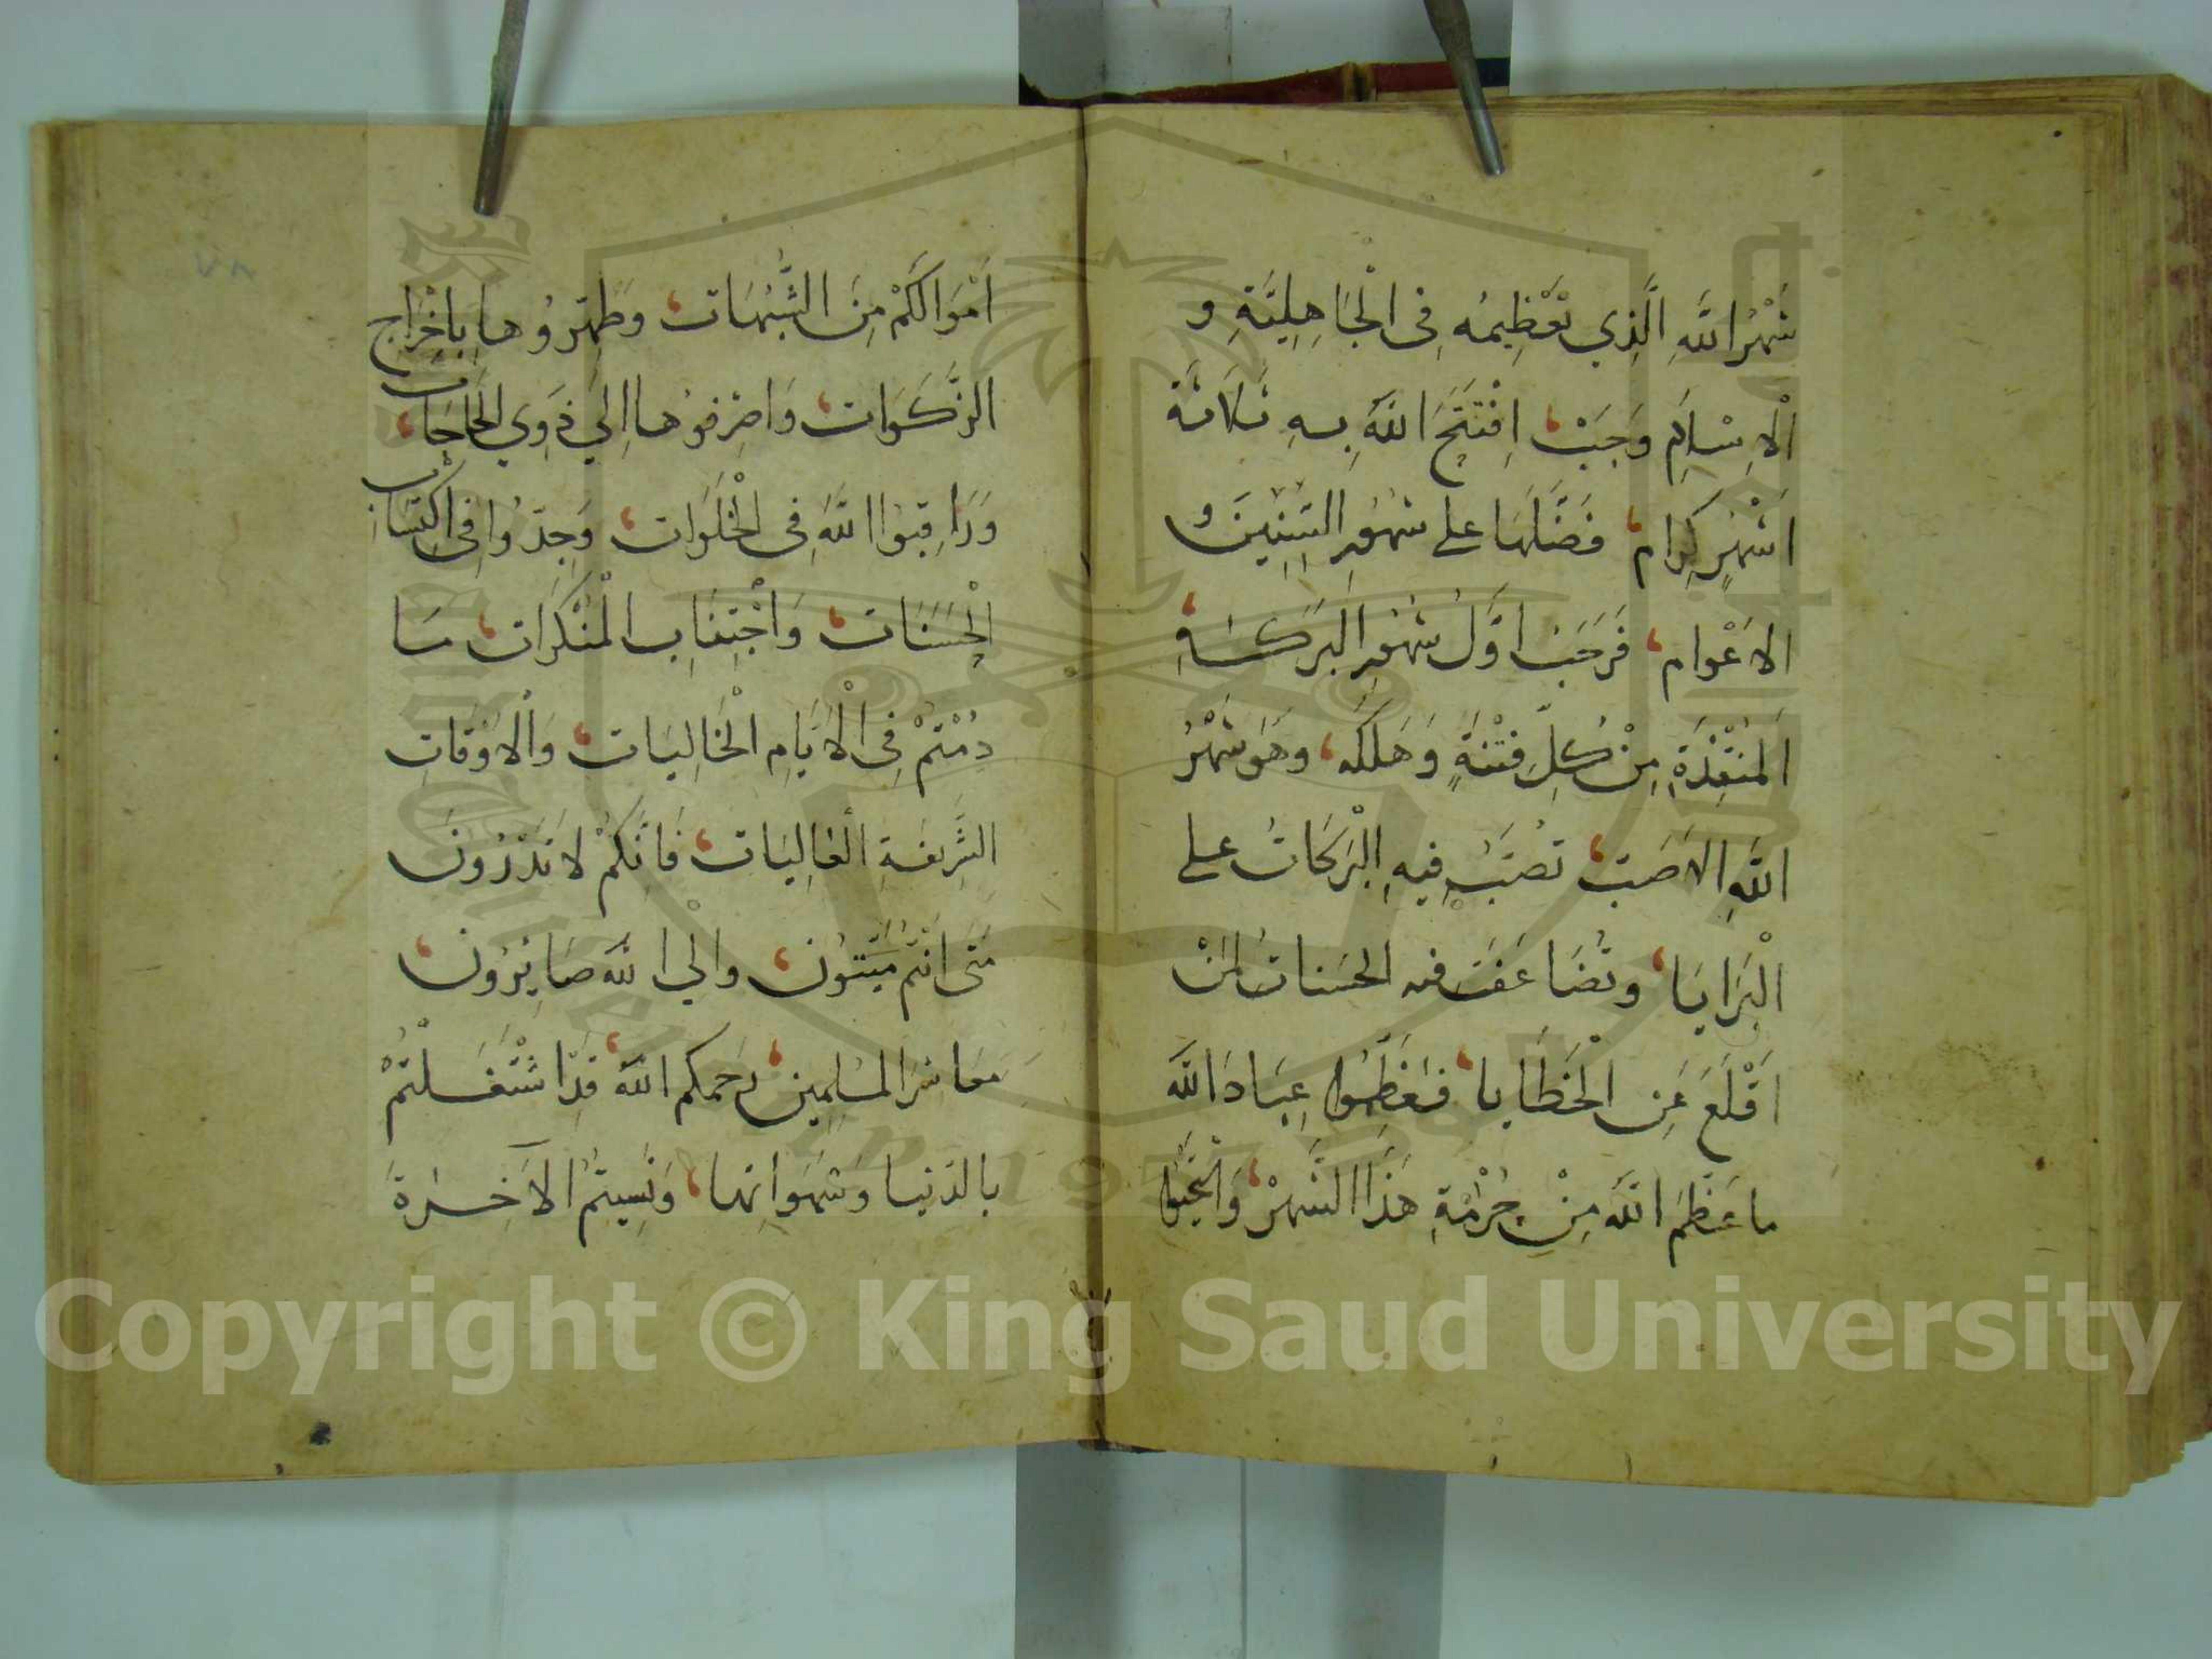 شَهْرُ اللَّهِ الَّذِي تَعْظِيمُهُ فِى الْجَاهِلِيَّةِ و
الْاِسْلَامِ وَجَبَ، اِفْتَتَحَ اللَّهُ بِهِ ثَلَاثَةَ
اَشْهُرٍ كِرَام، فَضَّلَهَا على شهُورِ السِّنِينَ و
الاَعْوام، فَرَجَبُ اوَّلُ شهُورِ البَرَكَةِ،
المُنْقِذَةِ مِنْ كُلِّ فِتْنَةٍ وَهَلَكَه، وهَوَ شَهْرُ
اللَّهِ الاَصَبّ، تُصَبُّ فِيهِ الْبَرَكَاتُ على
الْبَرَايَا، وتُضَاعَفُ فيه الحَسَناتُ لِمَنْ
اَقْلَعَ عَنِ الْخَطَايا، فَعَظِّمُوا عِبَادَ اللَّه
ما عَظَّمَ اللَّه مِنْ حُرْمَةِ هَذَا الشَّهْرْ،
اَمْوَالَكُمْ مِنَ الشُّبُهَات، وَطَهِّرُوها بِاِخْرَاجِ
الزَّكَوَات، وَاصْرِفوُها اِلَي ذَوِي الْحَاجَات،
وَرَاقِبُوا اللَّهَ فِى الْخَلَوَات، وَجِدّوُا فِى اكْتِسَابِ
الْحَسَنَات، وَاجْتِنَابِ الْمُنْكَرَات، مَا
دُمْتُمْ فِى الْاَيَّامِ الْخَالِيَات، وَالْاَوْقَاتِ
الشَّرِيفَةِ الْعَالِيَات، فَاِنَّكُمْ لَا تَدْرُونَ
مَتَى اَنْتُمْ مَيِّتوُن، وَاِلَي اللَّه صَايِرُون،
مَعَاشرَ المُسْلِمِين، رَحِمَكم اللَّه، قَدِ اشْتَغَلْتُمْ
بالدّنيا وَشَهَوَاتِها، وَنَسِيتُمُ الآخِرَةَ
٧٨
Copyright © King Saud University